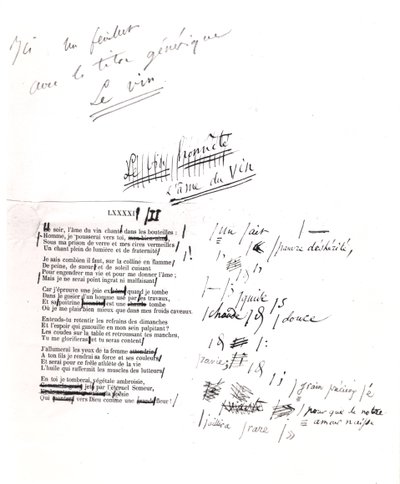 Ici un feuillet
avec le titre générique
Le vin
L'âme du Vin
LXXXXI II
Un soir, l'âme du vin chantait dans les bouteilles :
Homme, je pousserai vers toi,
Sous ma prison de verre et mes cires vermeilles
Un chant plein de lumière et de fraternité
Je sais combien il faut, sur la colline en flamme
De peine, de sueur et de soleil cuisant
Pour engendrer ma vie et pour me donner l'âme ;
Mais je ne serai point ingrat ni malfaisant
Car j'éprouve une joie quand je tombe
Dans le gosier d'un homme usé par les travaux,
Et sa poitrine est une
Où je me plais bien mieux que dans mes froids caveaux.
Entends-tu retentir les refrains des dimanches
Et l'espoir qui gazouille en mon sein palpitant?
Les coudes sur la table et retroussant tes manches,
Tu me glorifieras et tu seras content
J'allumerai les yeux de ta femme
A ton fils je rendrai sa force et ses couleurs
Et serai pour ce frêle athlète de la vie
L'huile qui raffermit les muscles des lutteurs
En toi je tomberai, végétale ambroisie,
par l'éternel Semeur,
poésie
Qui vers Dieu comme une fleur !
un fait
pauvre deshérité,
chaude & douce
ravie ;
& ;
grain précieux
pour que de notre
jaillira rare » amour naisse